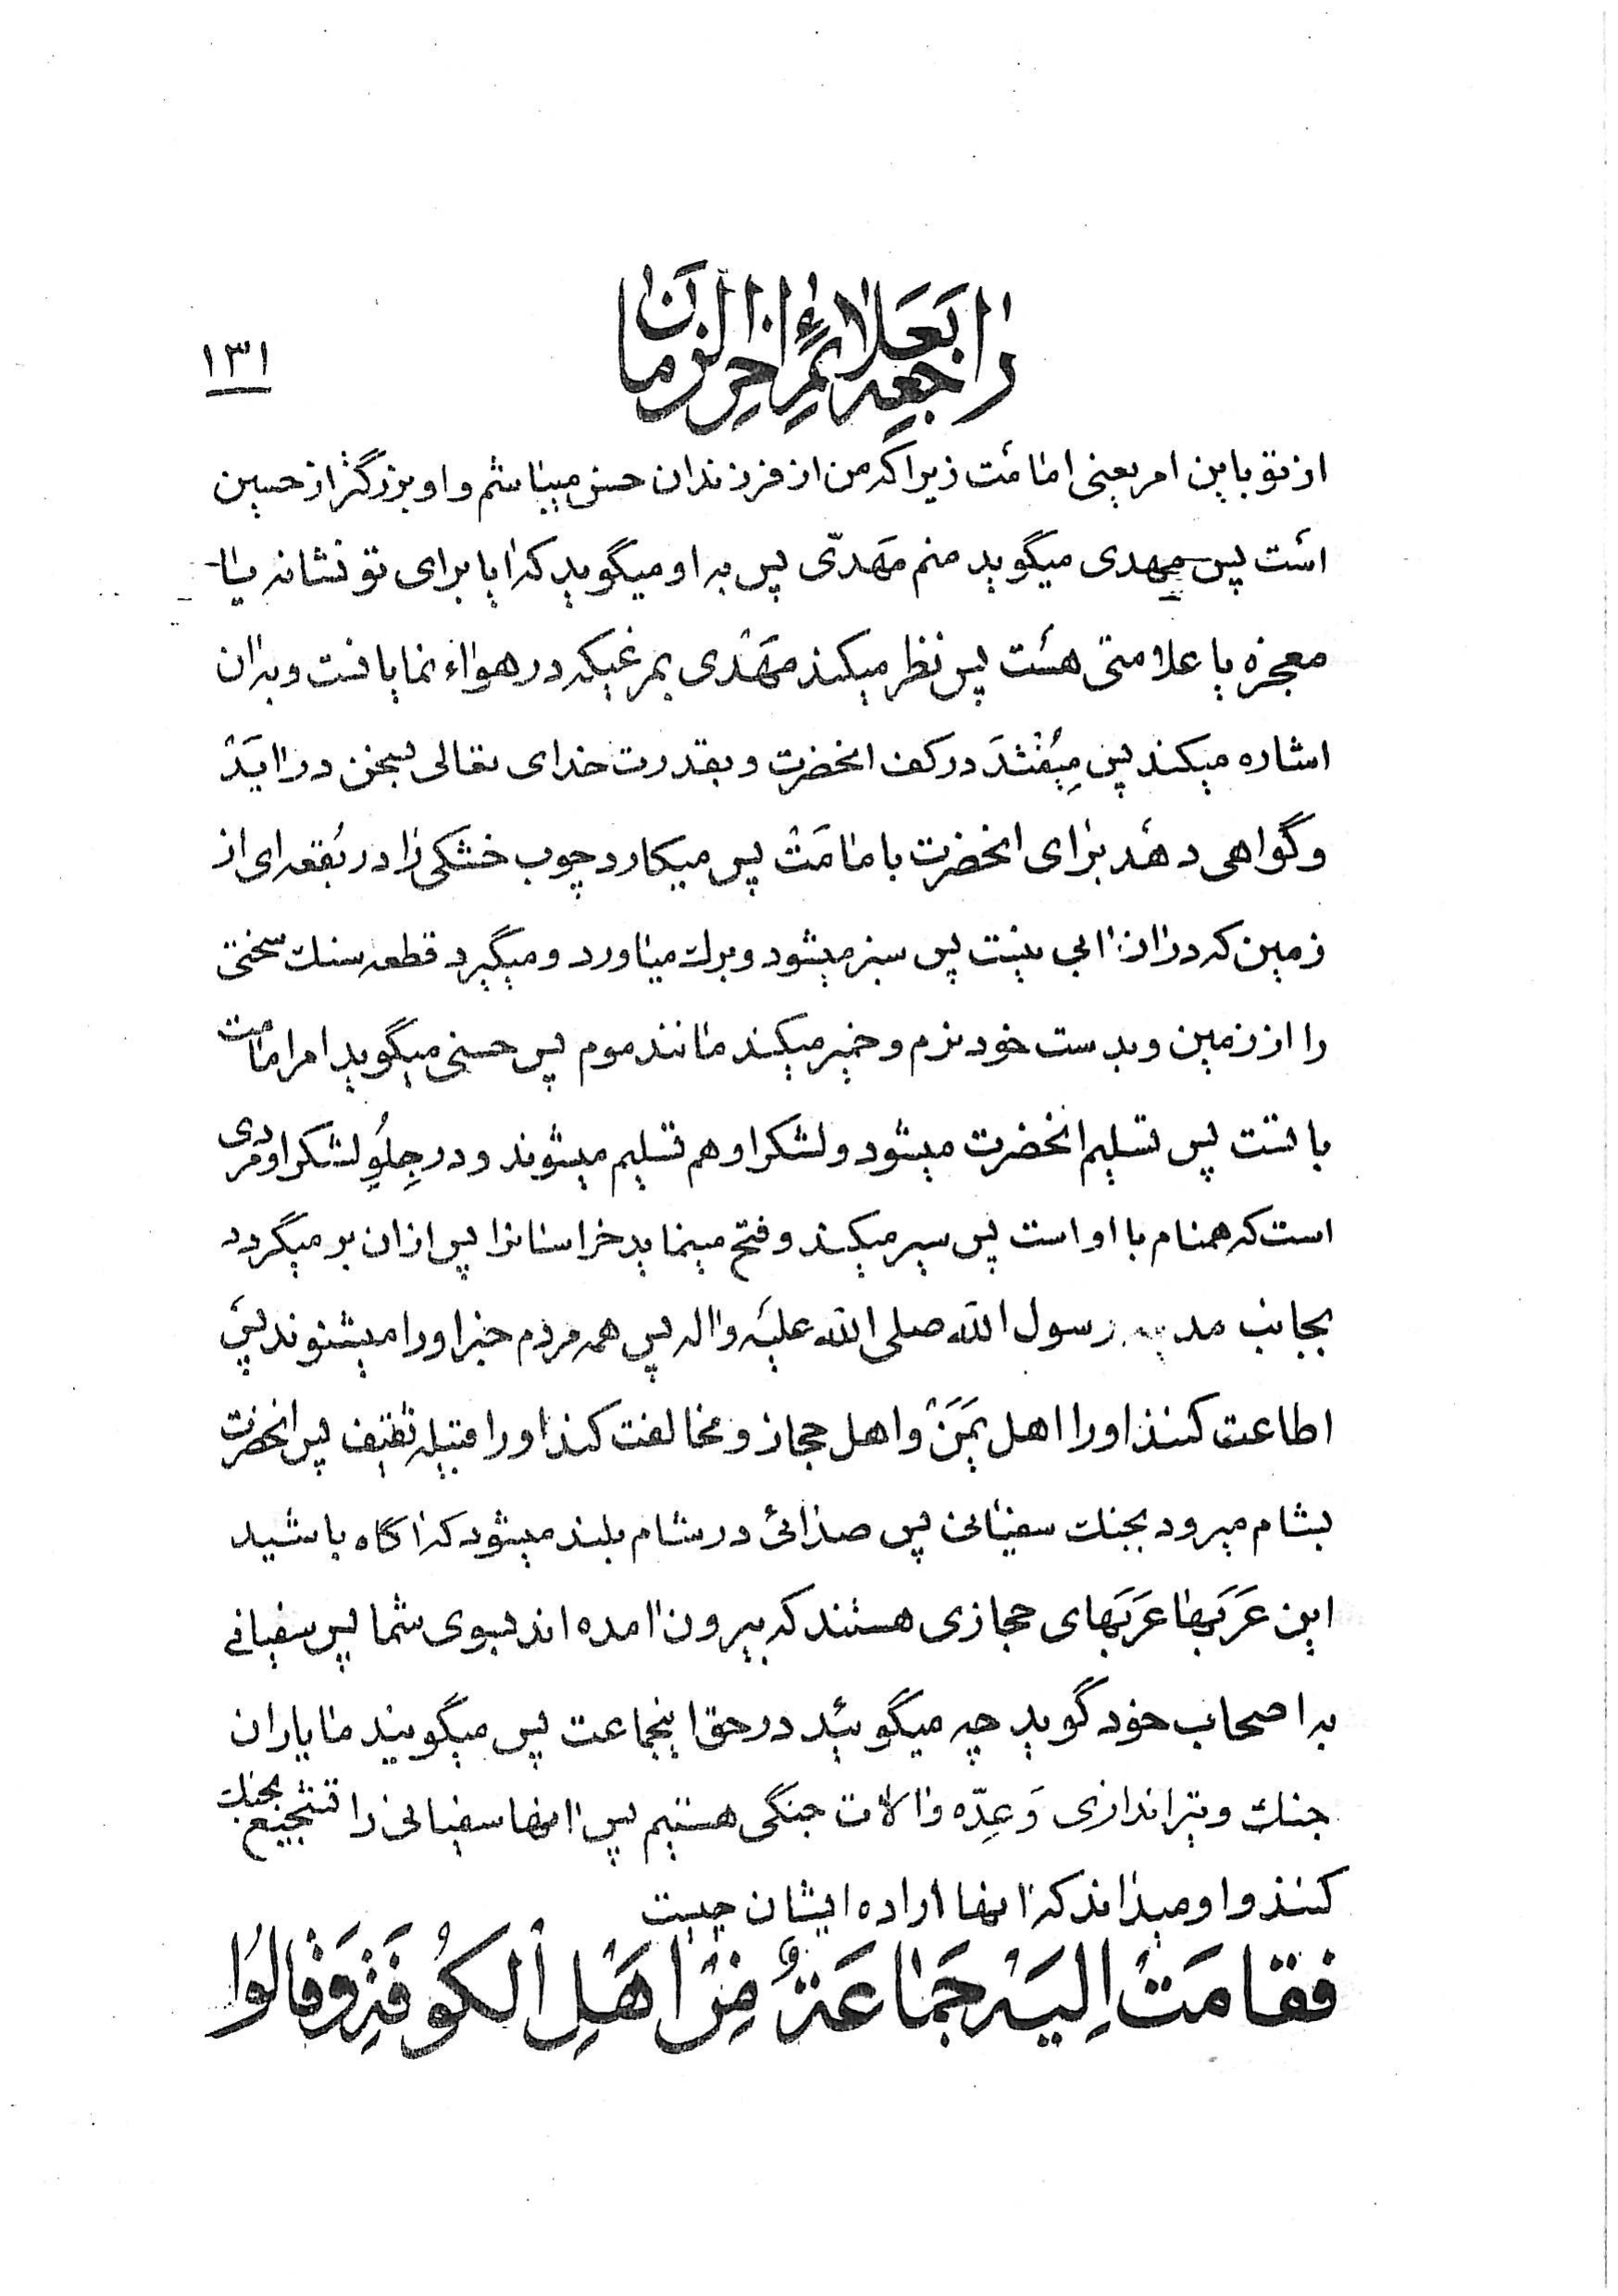 راجعه بعلائم اخر الزمان
۱۳۱
از تو باین امر یعنی امامت زیرا که من از فرزندان حسن میباشم و او بزرگتر از حسین
است پس مهدی میگوید منم مهدّی پس به او میگوید که ایا برای تو نشانه یا
معجزه یا علامتی هست پس نظر میکند مهدی بمرغیکه در هواء نمایانست و بدان
اشاره میکند پس میفتد در کف انحضرت و بقدرت خدای تعالی بسخن در اید
و گواهی دهد برای انحضرت بامامت پس میکارد چوب خشکی را در بُقعه ای از
زمین که در ان ابی نیست پس سبز میشود و برك میاورد و میگیرد قطعه سنك سختی
را از زمین و بدست خود نرم و خمیر میکند مانند موم پس حسنی میگوید امر امامت
با تست پس تسلیم انحضرت میشود و لشکر او هم تسلیم میشوند و در جِلُوِ لشکر او مردی
است که همنام با او است پس سیر میکند و فتح مینماید خراسانرا پس از ان بر میگردد
بجانب مدینه رسول الله صلی الله علیه واله پس همه مردم خبر او را میشنوند پس
اطاعت کنند او را اهل یَمَنْ و اهل حجاز و مخالفت کند او را قبیله ثقیف پس انحضرت
بشام میرود بجنك سفیانی پس صدائی در شام بلند میشود که اگاه باشید
این عَرَبها عَرَبهای حجازی هستند که بیرون امده اند بسوی شما پس سفیانی
به اصحاب خود گوید چه میگوئید در حق اینجماعت پس میگویند ما یاران
جنك و تیراندازی وَ عِدّه و الات جنگی هستیم پس انها سفیانی را تشجیع بجنك
کنند و او میداند که انها اراده ایشان چیست
فقامَتْ اِلیَه جَماعَةٌ مِنْ اَهْلِ الکُوفَةِ وَ قالُوا